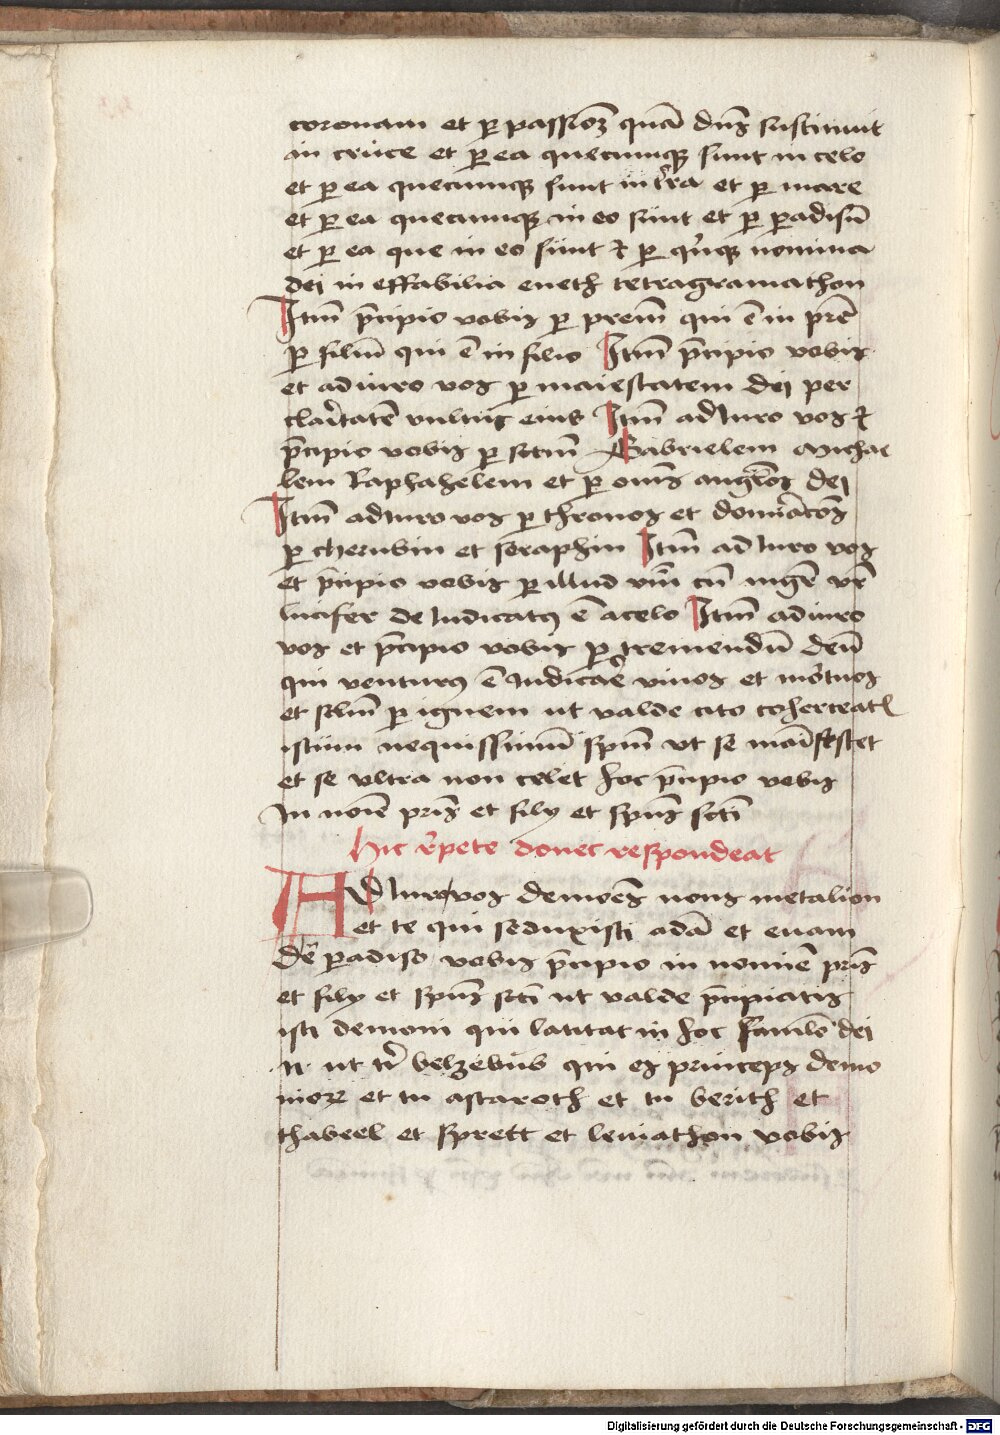 coronam et ꝑ passioꝫ quā dn̄s sustinuit
in cruce et ꝑ ea quecumqꝫ sunt in celo
et ꝑ ea quecumqꝫ sunt in tr̄ra et ꝑ mare
et ꝑ ea quecumqꝫ in eo sunt et ꝑ ꝑadisū
et ꝑ ea que in eo sunt ⁊ ꝑ qͥnqꝫ nomina
dei in effabilia eneth tetragramathon
Itm̄ p̄cipio vobis ꝑ prem̄ qui ē in pr̄e
ꝑ filiū qui ē in filio Itm̄ p̄cipio vobis
et adiuro vos ꝑ maiestatem dei per
claritatē vultus eius Itm̄ adiuro vos ⁊
p̄cipio vobis ꝑ sctm̄ Gabrielem Micha
lem Raphahelem et ꝑ om̄s angl̄os dei
Itm̄ adiuro vos ꝑ thronos et domīacōs
ꝑ cherubin et seraphin Itm̄ adiuro vos
et p̄cipio vobis ꝑ illud cū vr̄
lucifer de iudicatꝰ ē a celo Itm̄ adiuro
vos et p̄cipio vobis ꝑ tremendū deū
qui venturꝰ ē iudicar̄e viuos et mortuos
et sclm̄ ꝑ ignem ut valde cito coherceatꝭ
istum nequissimū spm̄ vt se māifestet
et se vltra non celet hoc p̄cipio vobis
In noīe pr̄is et filij et sp̄us scti
Hic rͤpete donec respondeat
Adiuro vos demōes nons metalion
et te qui seduxisti adā et euam
de ꝑadiso vobis p̄cipio in nomīe pr̄is
et filij et sp̄us scti ut valde p̄cipiatis
isti demoni qui latitat in hoc famlo dei
N ut tu belzebub qui es princeps demo
nioꝝ et tu astaroth et tu berith et
thabeel et sprett et leuiathon vobis
Digitalisierung gefördert durch die Deutsche Forschungsgemeinschaft - DFG